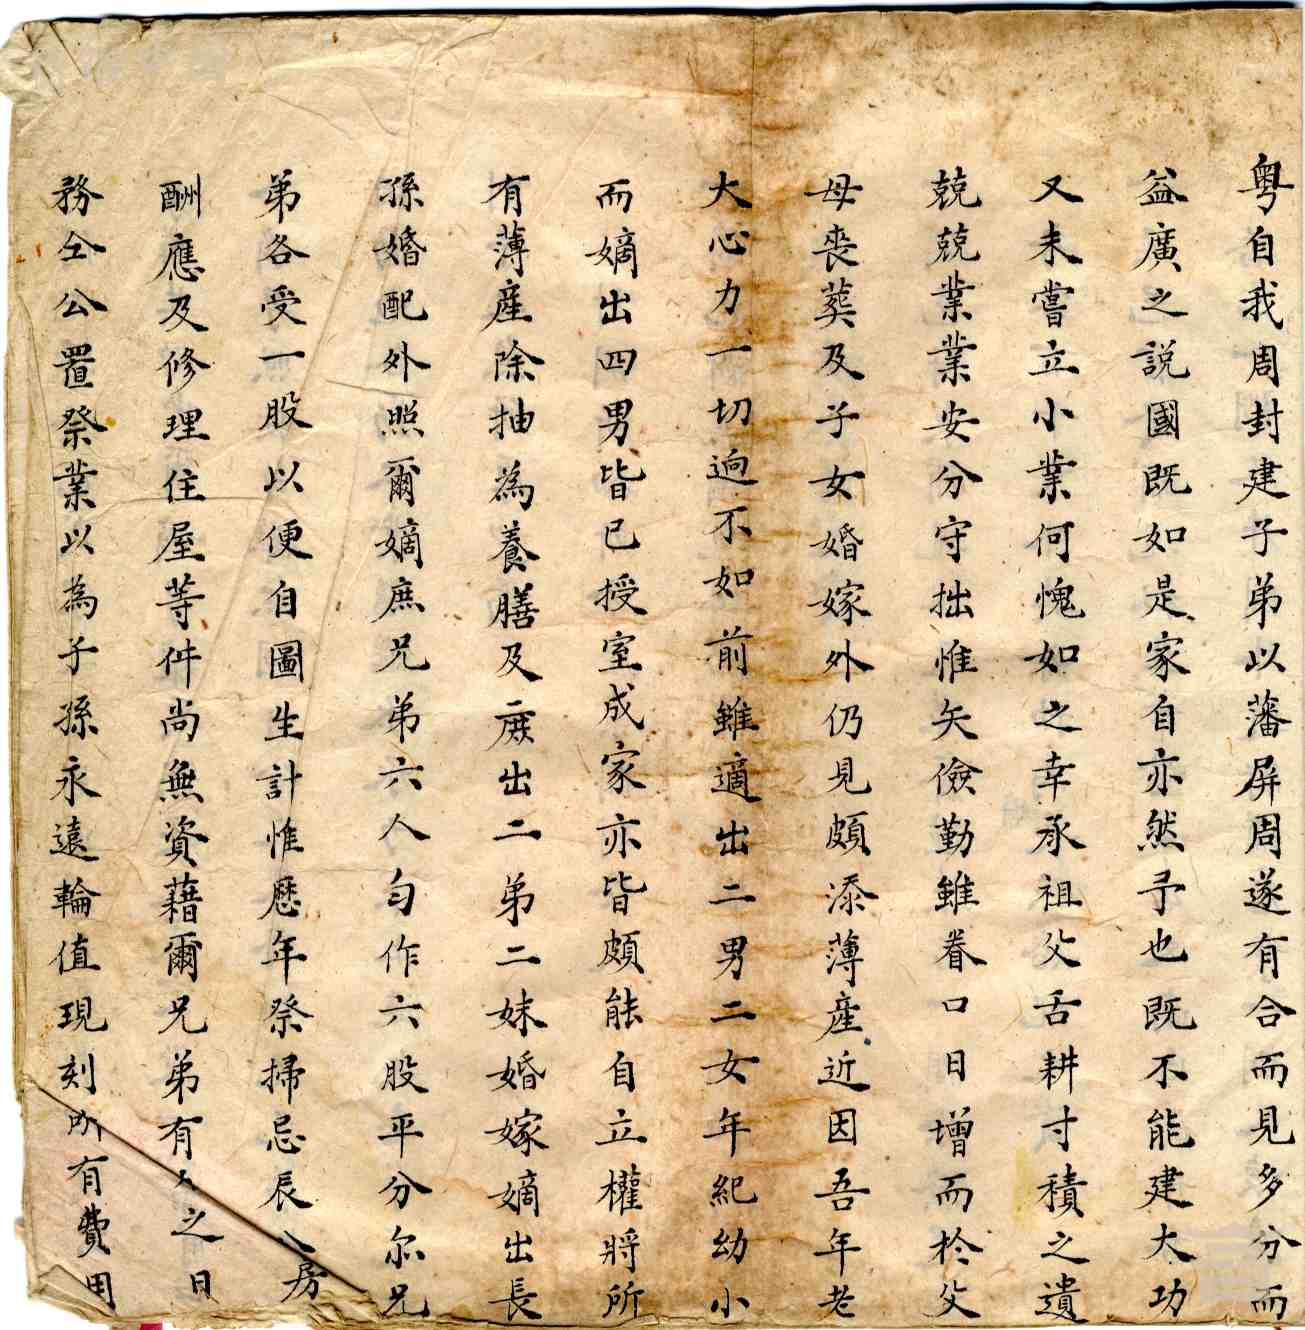 粤自我周封建子弟以藩屏周遂有合而見多分而
益廣之説國既如是家自亦然予也既不能建大功
又未嘗立小業何愧如之幸承祖父舌耕寸積之遺
兢兢業業安分守拙惟矢儉勤雖眷口日增而於父
母喪葬及子女婚嫁外仍見頗添薄產近因吾年老
大心力一切逈不如前雖適出二男二女年紀幼小
而嫡出四男皆已授室成家亦皆頗能自立權將所
有薄產除抽為養膳及庶出二弟二妹婚嫁嫡出長
孫婚配外照爾嫡庶兄弟六人勻作六股平分爾兄
弟各受一股以便自圖生計惟歷年祭掃忌辰房
酬應及修理住屋等件尚無資藉爾兄弟有之日
務仝公置祭業以為子孫永遠輪值現刻所有費用